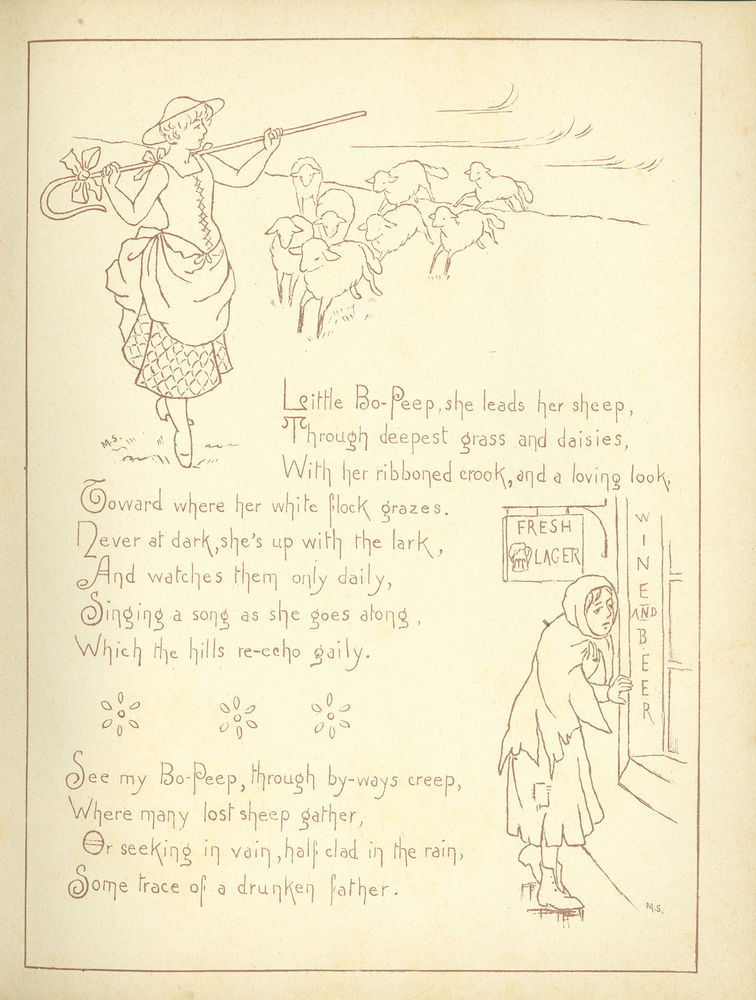 M.S.
Little Bo-Peep, she leads her sheep,
Through deepest grass and daisies,
With her ribboned crook, and a loving look,
Toward where her white flock grazes.
Never at dark, she's up with the lark,
And watches them only daily,
Singing a song as she goes along,
Which the hills re-echo gaily.
FRESH
LAGER
WINE
AND
BEER
See my Bo-Peep, through by-ways creep,
Where many lost sheep gather,
Or seeking in vain, half clad in the rain,
Some trace of a drunken father.
M.S.